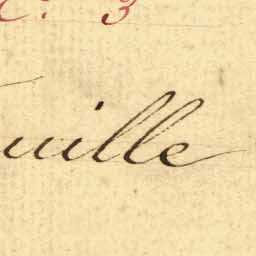 C. 3
uille